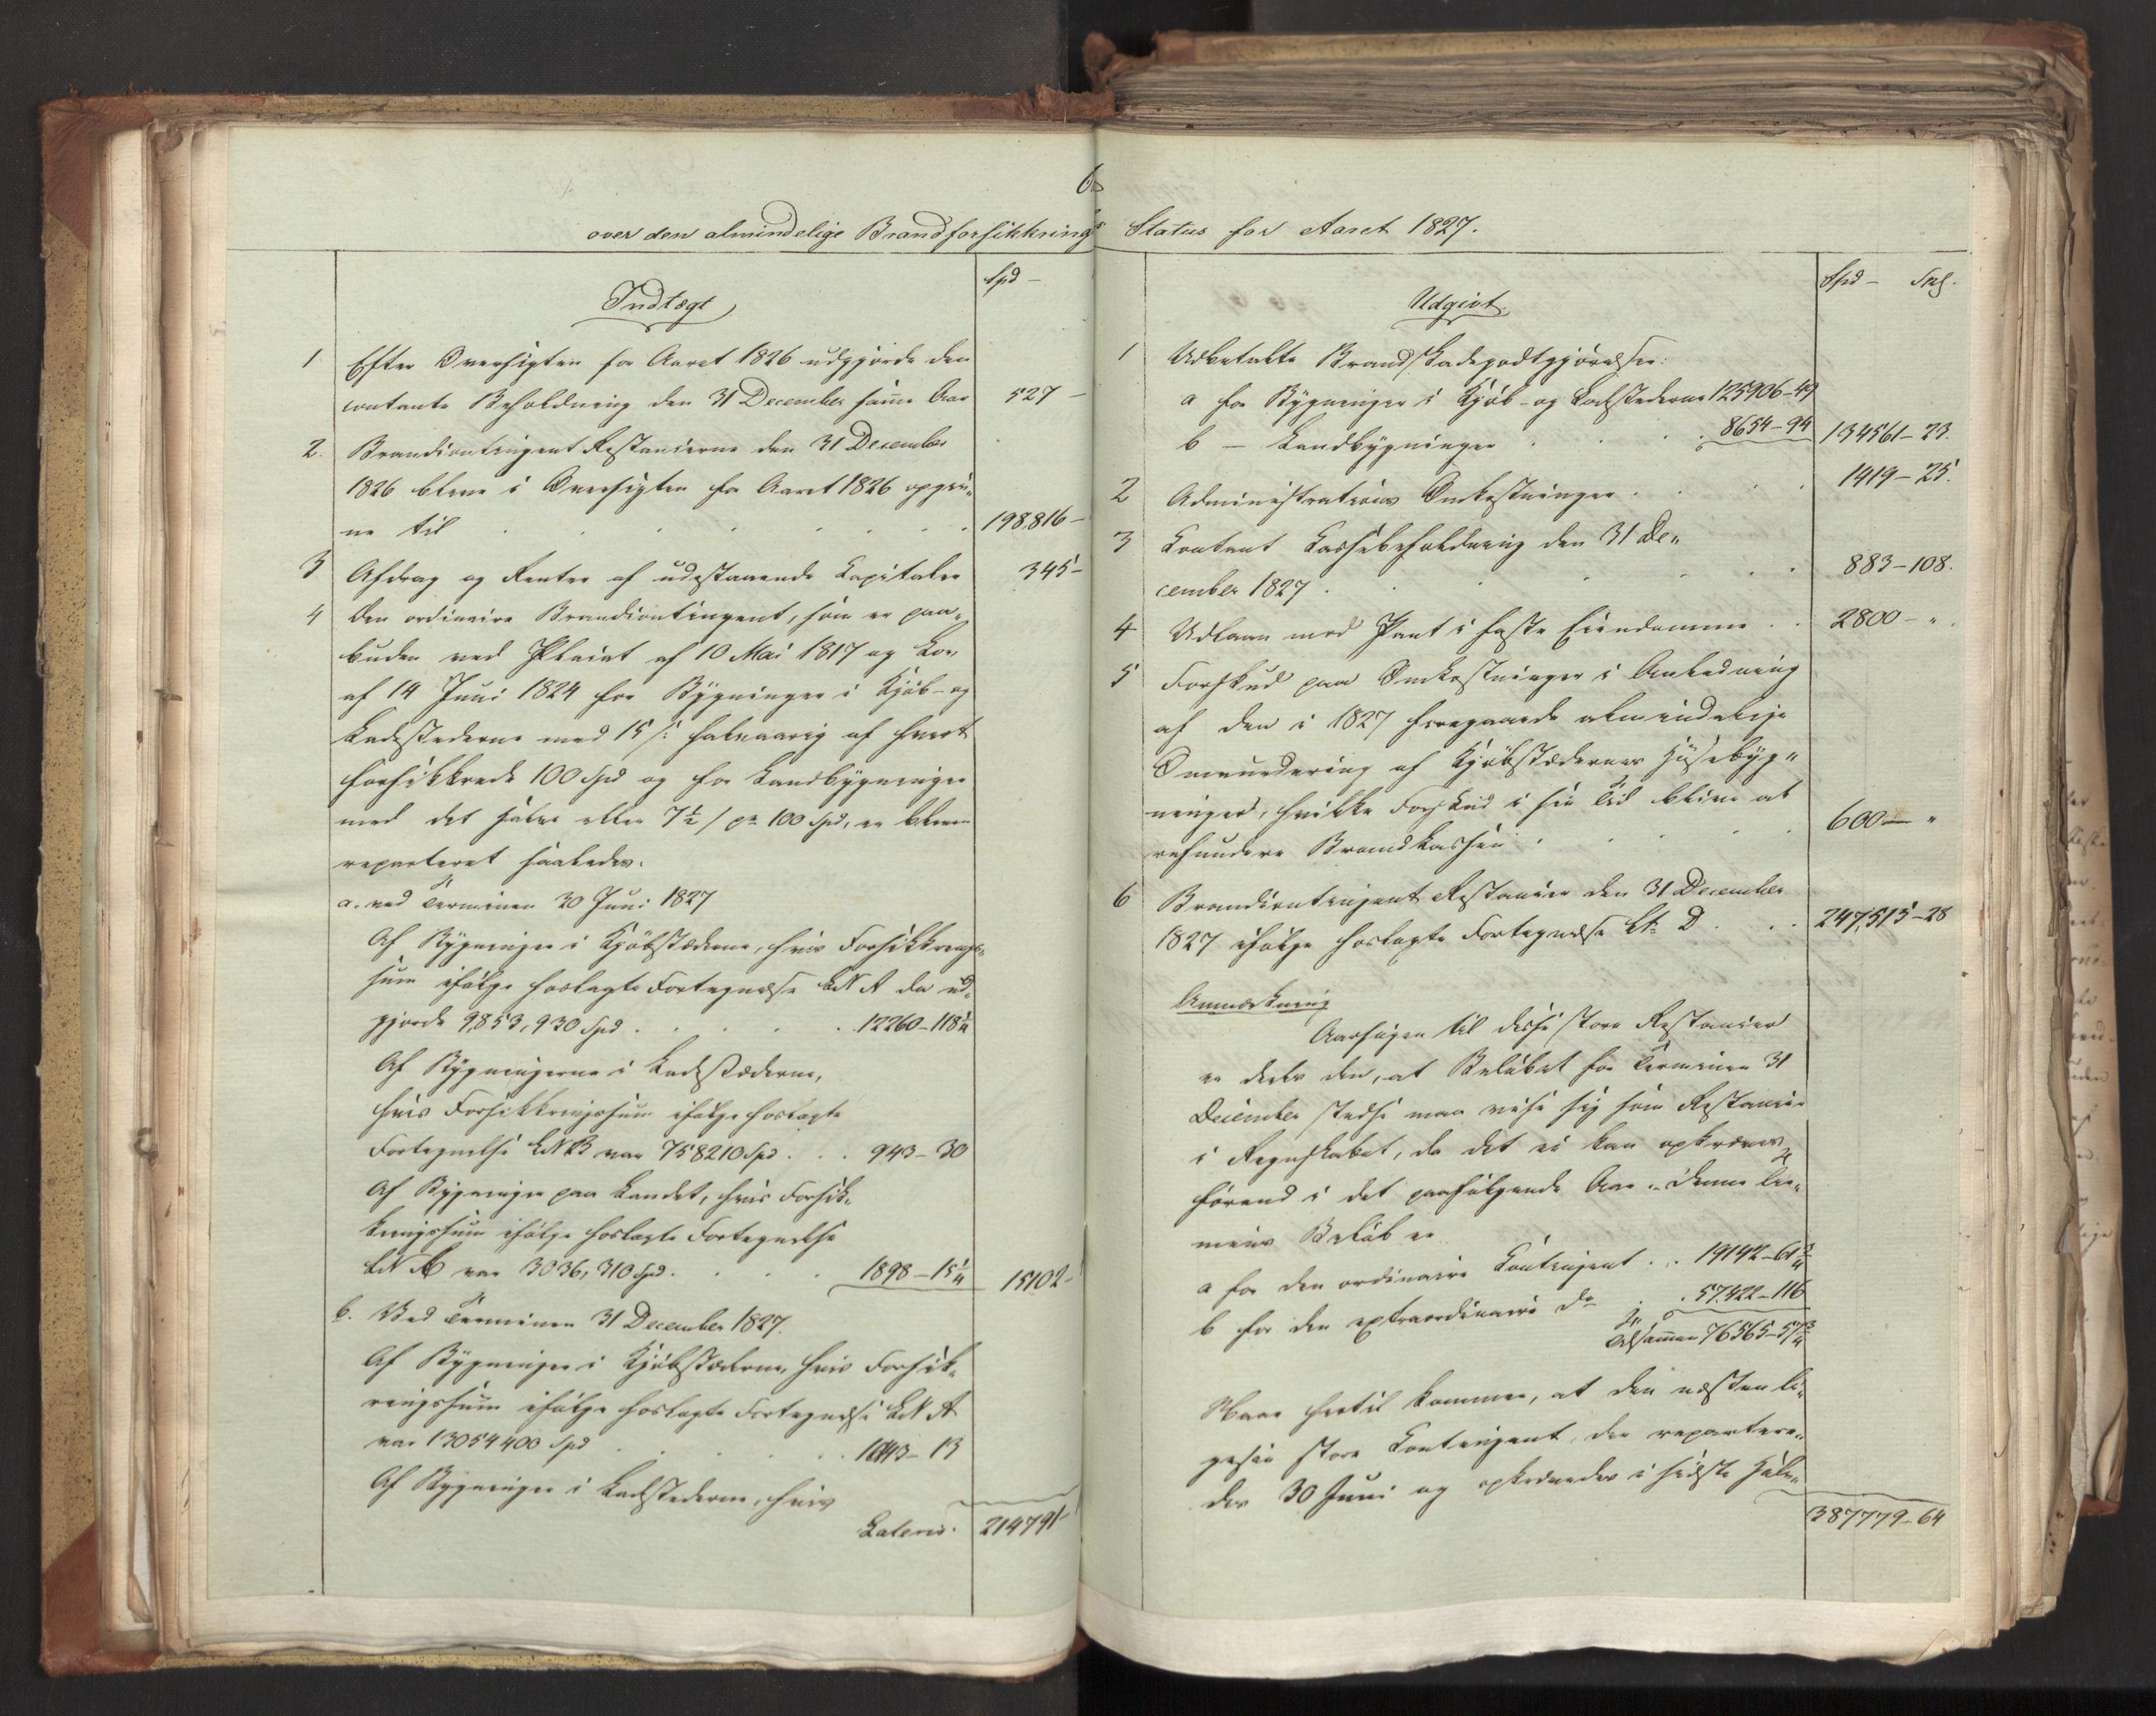 over den almindelige Brandforsikkrings Status for Aaret 1827.
Spd -
Indtægt
1 Efter Oversigten for Aaret 1826 udgjorde den
contante Beholdning den 31 December samme Aar 527 -
2. Brandcontingent Restancerne den 31 December
1826 bleve i Oversigten for Aaret 1826 opgiv-
ne til 198816 -
3 Afdrag og Renter af udestaaende Capitaler 345 -
4 Den ordinaire Brandcontingent, som er paa-
buden ved Placat af 10 Mai 1817 og Lov
af 14 Juni 1824 for Bygninger i Kjøb- og
Ladestederne med 15 s: halvaarig af hvert
forsikkrede 100 Spd og for Landbygninger
med det halve eller 7½ s pr 100 Spd, er bleven
reparteret saaledes.
a. ved Terminen 30 Juni 1827
Af Bygninger i Kjøbstæderne, hvis Forsikkrings-
sum ifølge hoslagte Fortegnelse LN A da ud-
gjorde 9,853,930 Spd 12260-118¼
Af Bygningerne i Ladestæderne,
hvis Forsikkringssum ifølge hoslagte
Fortegnelse LN B var 758210 Spd 943-30
Af Bygninger paa Landet, hvis Forsik-
kringssum ifølge hoslagte Fortegnelse
LN C var 3036,310 Spd 1898-15¼ 15102-
b. Ved Terminen 31 December 1827.
Af Bygninger i Kjøbstæderne, hvis Forsik-
ringssum ifølge hoslagte Fortegnelse LN A
var 13054400 Spd
Af Bygninger i Ladestederne, hvis
Lateris. 214791
Spd - Sk.
Udgivt.
1 Udbetalte Brandskadegodtgjørelser:
a for Bygninger i Kjøb- og Ladestederne 125906-49
b - Landbygninger 8654-94 134561-23.
2 Administrations Omkostninger 1419-25.
3 Contant Cassebeholdning den 31 De-
cember 1827 883-108.
4 Udlaan mod Pant i faste Eiendomme 2800 - "
5 Forskud paa Omkostninger i Anledning
af den i 1827 foregaaende almindelige
Omvurdering af Kjøbstædernes Huusebyg-
ninger, hvilke Forskud i sin Tid blive at
refundere Brandkassen 600 - "
6 Brandcontingent Restancer den 31 December
1827 ifølge hoslagte Fortegnelse Lt D 247,515-28
Anmærkning
Aarsagen til disse store Restancer
er deels den, at Beløbet for Terminen 31
December stedse maa vise sig som Restance
i Regnskabet, da det ei kan opkræves
førend i det paafølgende Aar. Denne Ter-
mins Beløb er
a for den ordinaire Contingent 19142-61¾
b for den extraordinaire do 57,422-116
Tilsammen 76565-57¾
Naar hertil kommer, at den næsten li-
gesaa store Contingent, der repartere-
des 30 Juni og opkrævedes i sidste Halv-
387779-64